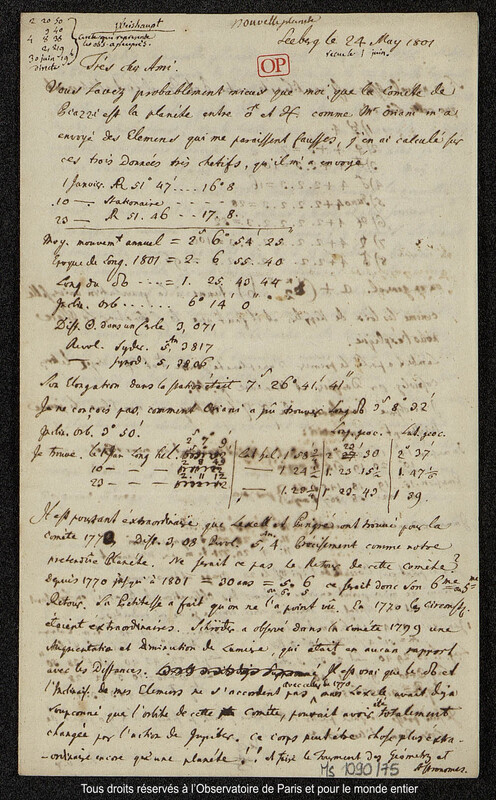 nouvelle planete
Seeberg le 24 May 1801
recue le 1 juin.
OP
Très cher Ami.
Vous savez probablement mieux que moi que la Comète de
Piazzi est la planète entre ♂ et ♃. comme Mr Oriani m'a
envoyé des Elemens qui me paraissent fausses, j'en ai calculé sur
ces trois Données très chetifs, qu'il m'a envoyé.
1 Janvier. R 51° 47' .... 16° 8
10 — Stationaire
23 — R 51. 46 -- 17. 8.
Moy. mouvemt annuel = 2s 6° 54' 25
Epoque de Long. 1801 = 2. 6 55. 40
Long du ☊ .... = 1. 25. 43 44
Inclin. orb. ... 6° 14' 0"
Dist. ☉. dans un Cercle 3, 071
Revol. syder. 5, 3817
— synod.
Son Elongation dans la station étoit 7s. 26° 41' 41"
Je ne conçois pas, comment Oriani a pû trouver Long ☊ 3s 8° 32'
Inclin. orb. 3° 50'.
Long. geoc. Lat. geoc.
Je trouve. le 1 Jan Long hel.
10 —
23 —
Il est pourtant extraordinaire que Lexell et Pingré ont trouvé pour la
Comète 1770. Dist. 3, 08 Revol. 5, 4. Precisement comme notre
pretendue Planète. Ne serait ce pas le Retour de cette comète?
depuis 1770 jusqu'à 1801 = 30 ans = ce serait donc son 6me ou 5me
Retour. Sa Petitesse a fait qu'on ne l'a point vue. En 1770 les circonst.
étaient extraordinaires. Schröter a observé dans la comète 1799 une
Augmentation et diminution de Lumière, qui était en aucun rapport
avec les Distances. Il est vrai que le ☊ et
l'Inclinais. de mes Elemens ne s'accordent pas avec celles de 1770 mais Lexell avait déjà
soupçonné que l'orbite de cette Comète, pouvait avoir été totalement
changée par l'action de Jupiter. Ce corps peut être chose plus extra-
ordinaire encore qu'une planète!! et faire le Tourment des Géomètres et
Astronomes.
Ms 1090/75
Tous droits réservés à l'Observatoire de Paris et pour le monde entier